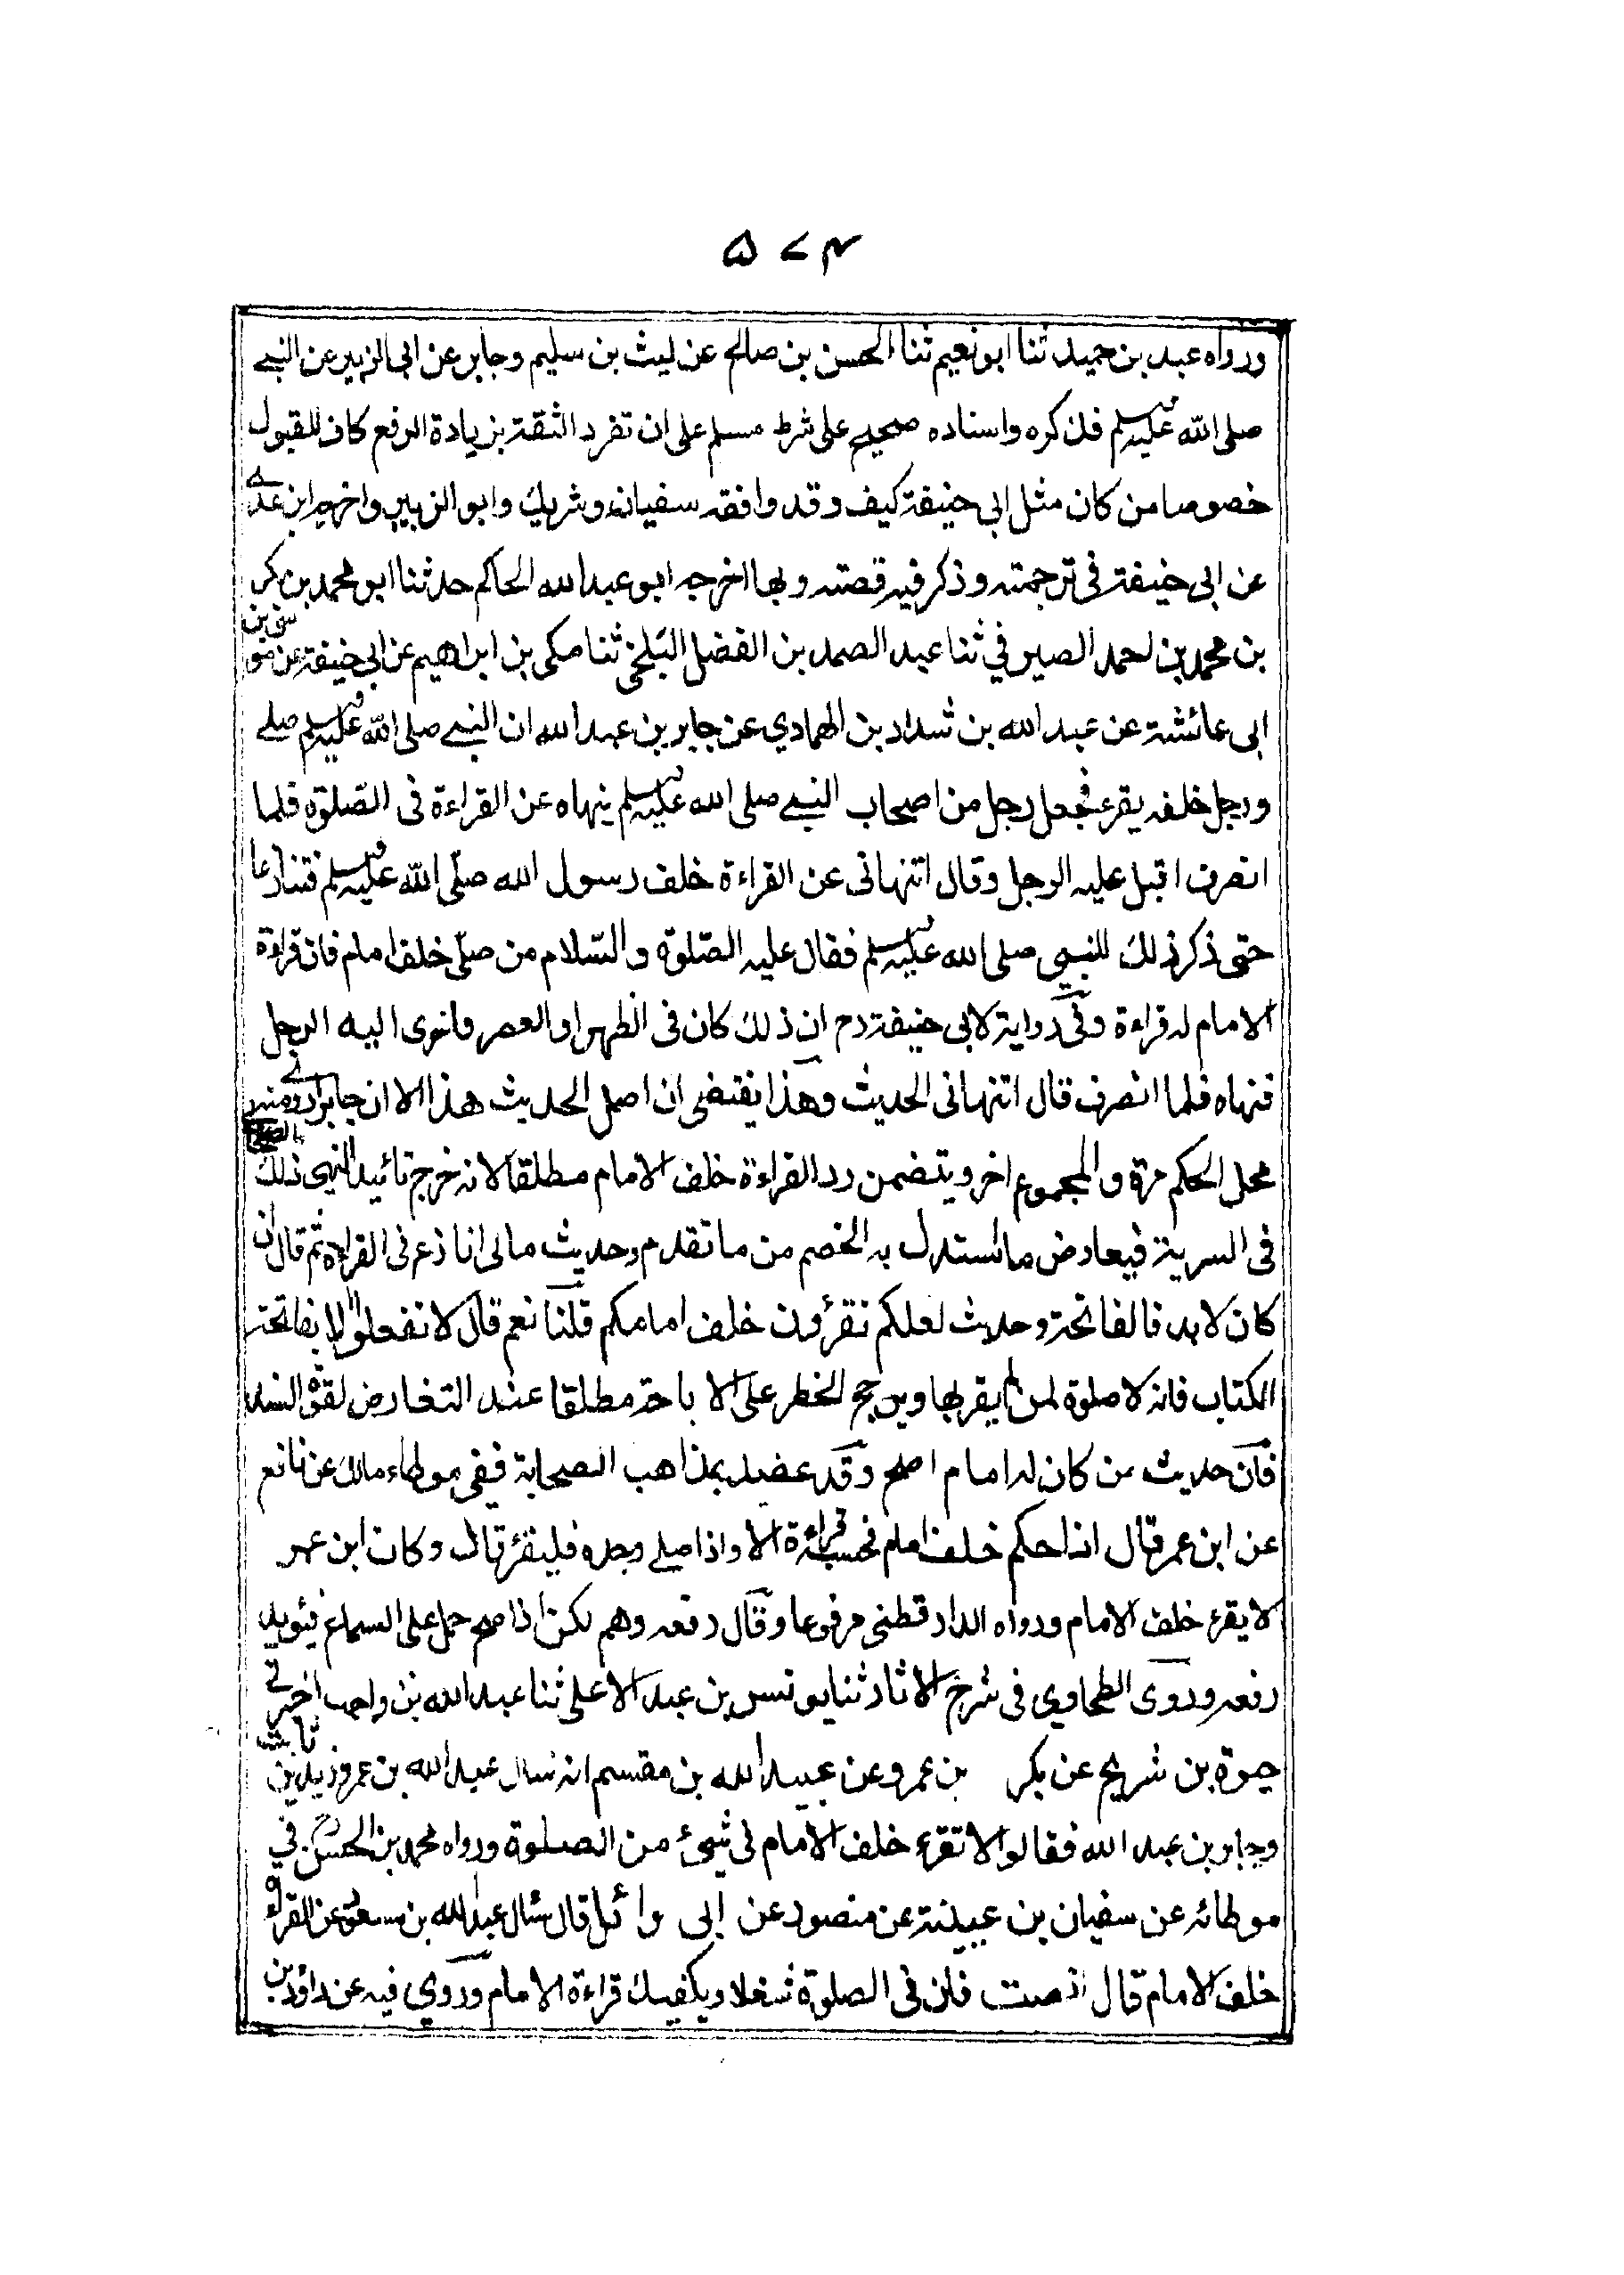 ۵۷۴
ورواه عبد بن حميد ثنا ابو نعيم ثنا الحسن بن صالح عن ليث بن سليم وجابر عن ابى الزبير عن النبے
صلى الله عليه وسلم فذكره واسناده صحيح على شرط مسلم على ان تفرد الثقة بزيادة الرفع كاف للقبول
خصوصا من كان مثل ابى حنيفة كيف وقد وافقه سفيان وشريك وابو الزبير واخرج ابن عدے
عن ابى حنيفة فى ترجمته وذكر فيه قصته وبها اخرجه ابو عبد الله الحاكم حدثنا ابو محمد بن بكر
بن محمد بن احمد الصيرفي ثنا عبد الصمد بن الفضل البلخى ثنا مكى بن ابراهيم عن ابى حنيفة عن موسى بن
ابى عائشة عن عبد الله بن شداد بن الهادي عن جابر بن عبد الله ان النبے صلى الله عليه وسلم صلے
ورجل خلفه يقرء فجعل رجل من اصحاب النبے صلى الله عليه وسلم ينهاه عن القراءة فى الصلوة فلما
انصرف اقبل عليه الرجل وقال اتنهانى عن القراءة خلف رسول الله صلّى الله عليه وسلم فتنازعا
حتى ذكر ذلك للنبي صلى الله عليه وسلم فقال عليه الصّلوة والسّلام من صلّى خلف امام فان قراءة
الامام له قراءة وفى رواية لابى حنيفة رح ان ذلك كان فى الظهر او العصر فانوى اليه الرجل
فنهاه فلما انصرف قال اتنهانى الحديث وهذا يقتضى ان اصل الحديث هذا الا ان جابرا روے منه
محل الحكم مرة والمجموع اخر ويتضمن رد القراءة خلف الامام مطلقا لانه خرج تائيد النهى ذلك
فى السرية فيعارض ما استدل به الخصم من ما تقدم وحديث مالى انازع فى القراءة ثم قال ان
كان لا بد فالفاتحة وحديث لعلكم تقرؤن خلف امامكم قلنا نعم قال لا تفعلوا الا بفاتحة
الكتاب فانه لا صلوة لمن لم يقر بها ويرجح الخطر على الا باحة مطلقا عند التعارض لقوة السند
فان حديث من كان له امام اصح وقد عضد بمذاهب الصحابة ففى موطاء مالك عن نافع
عن ابن عمر قال اذا احدكم خلف امام فحسبه قراءة الا واذا صلے وحده فليقرء قال وكان ابن عمر
لا يقرء خلف الامام ورواه الدارقطنى مرفوعا وقال رفعه وهم لكن اذا صح حمل على السماع فيئويد
رفعه وروى الطحاوي فى شرح الاثار ثنا يونس بن عبد الاعلى ثنا عبد الله بن واهب اخبرنے
حيوة بن شريح عن بكر بن عمرو عن عبيد الله بن مقسم انه سال عبد الله بن عمر وزيد بن ثابت
وجابر بن عبد الله فقالوا لا تقرء خلف الامام فى شيئ من الصلوة ورواه محمد بن الحسن في
موطائه عن سفيان بن عيينة عن منصور عن ابى وائل قال سئال عبد الله بن مسعود عن القراءة
خلف الامام قال انصت فان فى الصلوة شغلا ويكفيك قراءة الامام وروي فيه عن داؤد بن